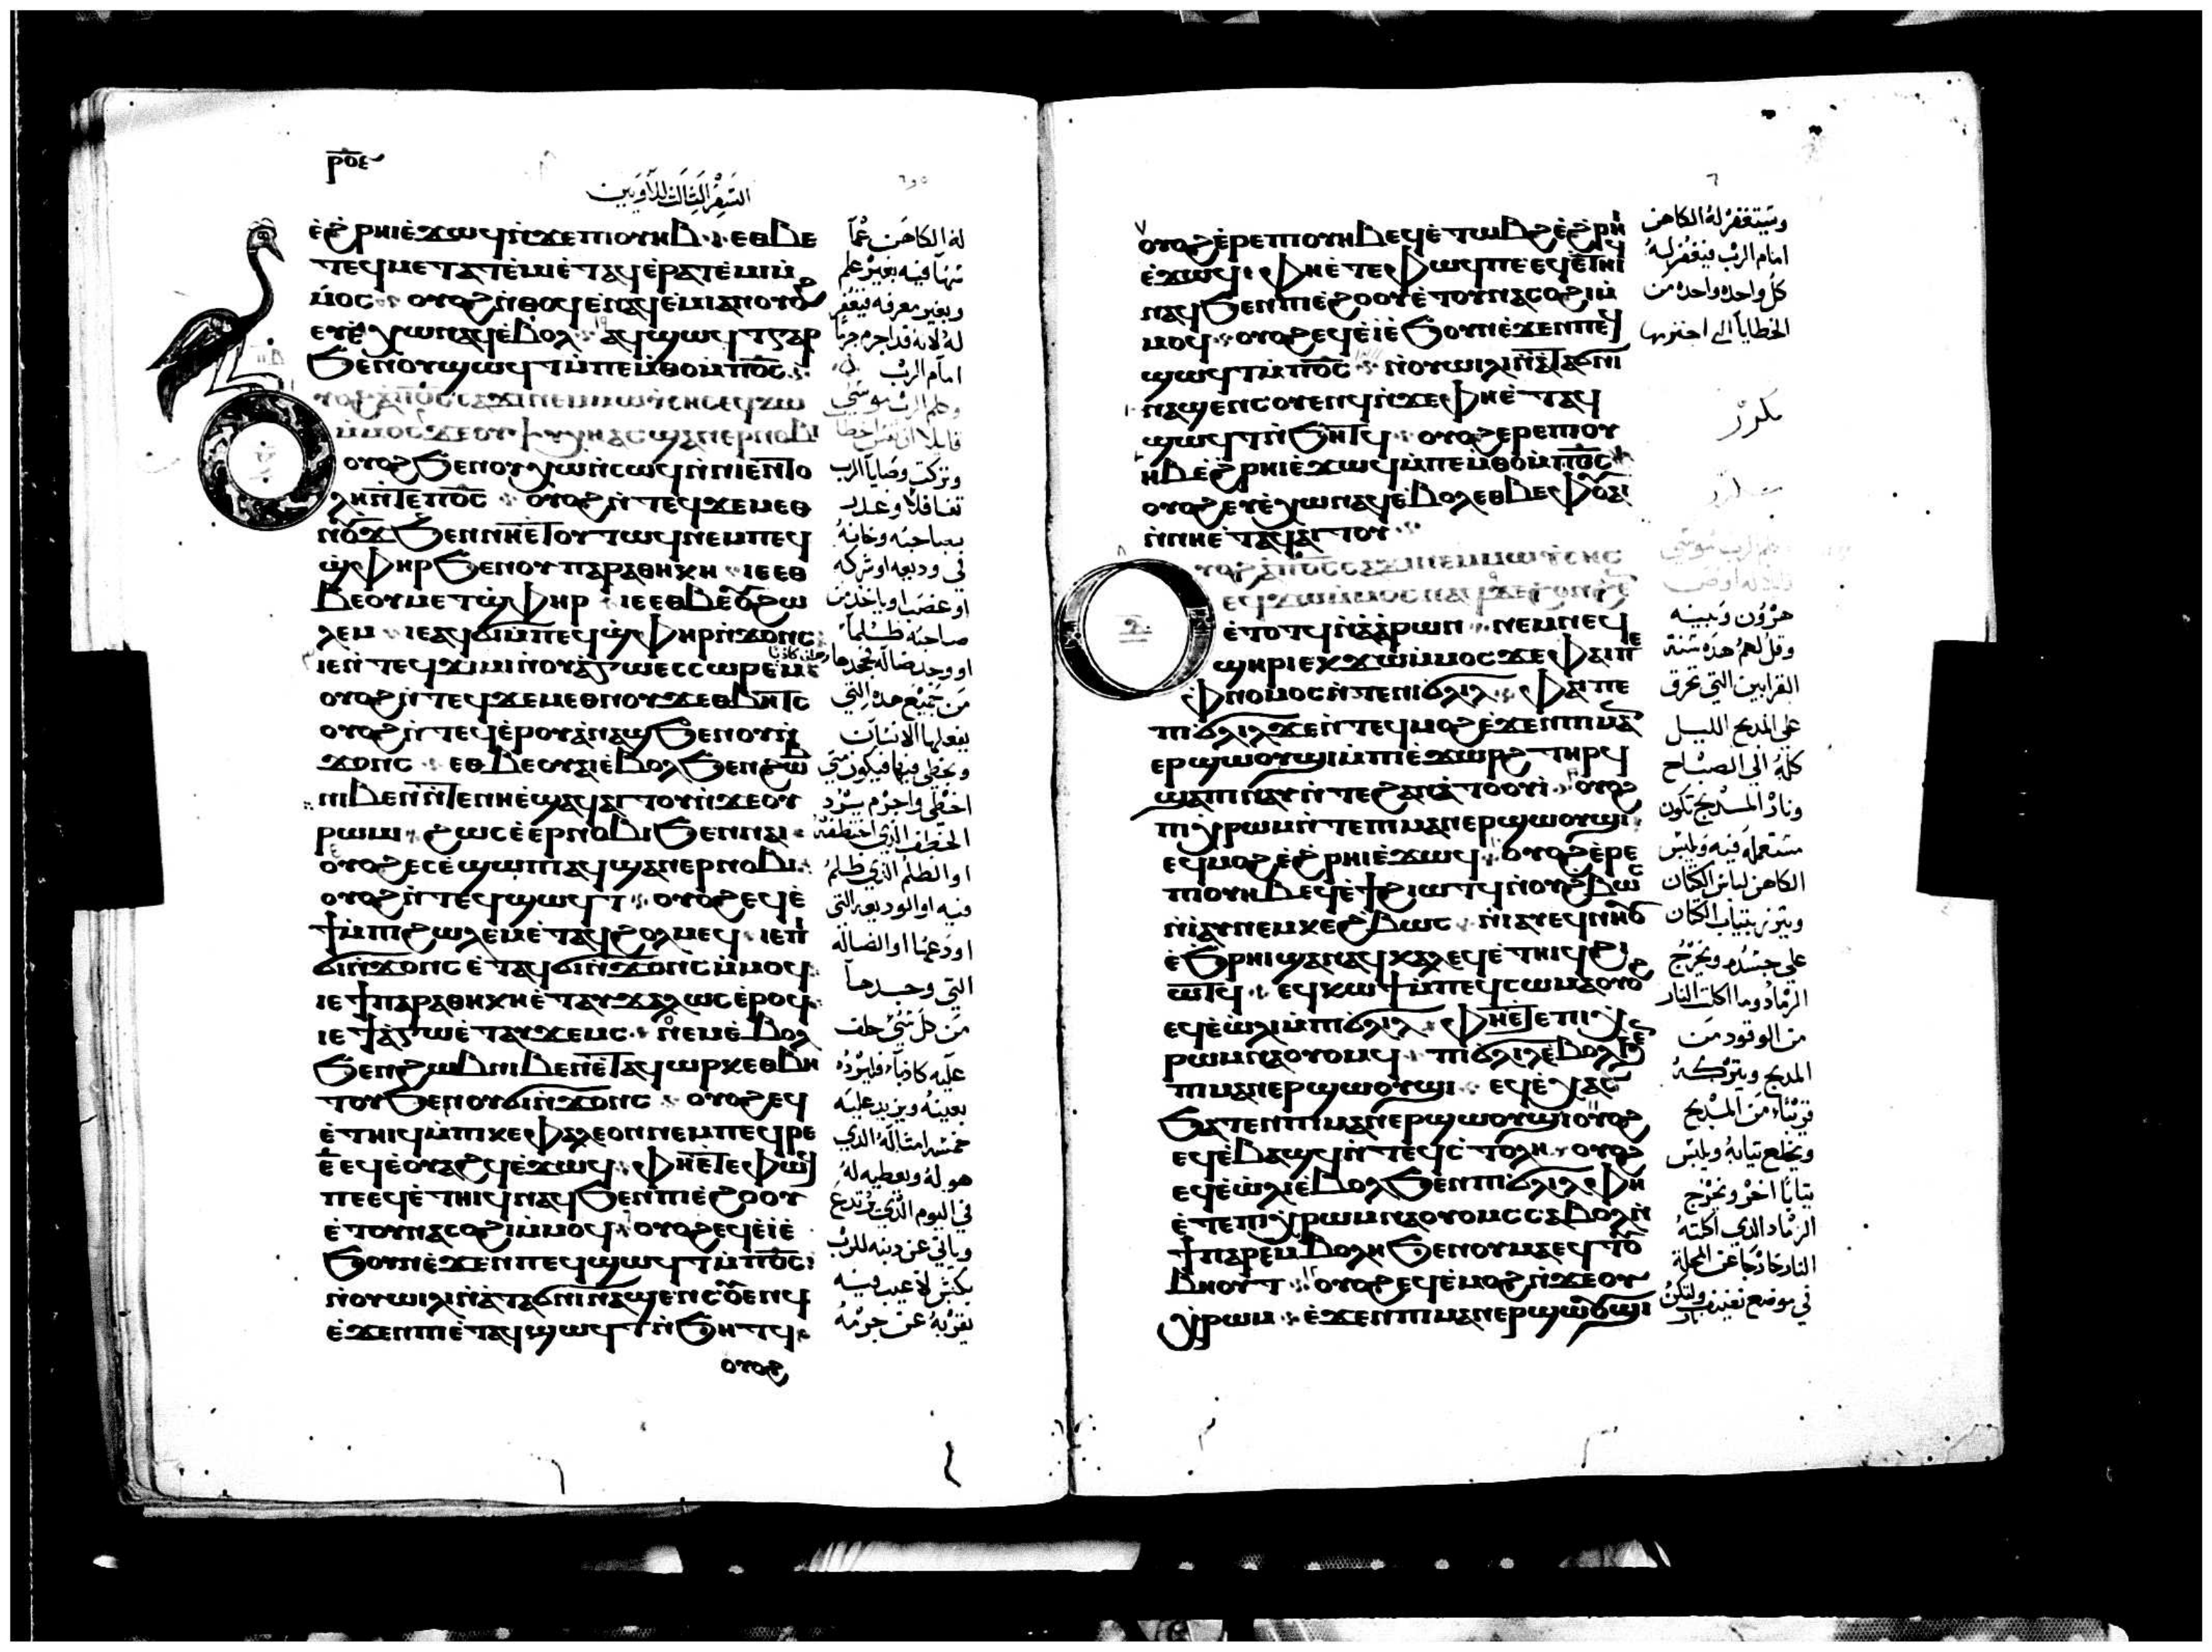 ⲣⲟⲉ
السفر الثالث للاويين
ⲉ̀ϩⲣⲏⲓⲉ̀ϫⲱϥⲛ̀ϫⲉⲡⲓⲟⲩⲏⲃ ⲉⲑⲃⲉ
ⲧⲉϥⲙⲉⲧⲁⲧⲉ̀ⲙⲓⲉ̀ⲧⲁϥⲉⲣⲁⲧⲉ̀ⲙⲓⲙ̀
ⲙⲟⲥ ⲟⲩⲟϩⲛ̀ⲑⲟϥⲉⲛⲁϥⲉ̀ⲙⲓⲁⲛⲟⲩⲟϩ
ⲉⲩⲉ̀ⲭⲱⲛⲁϥⲉ̀ⲃⲟⲗ ⲁϥϣⲱϥⲧⲅⲁⲣ
ϧⲉⲛⲟⲩϣⲱϥⲧⲙ̀ⲡⲉⲙⲑⲟⲙ̀ⲡⲟ̅ⲥ̅
ⲟⲩⲟϩⲁ̀ⲡⲟ̅ⲥ̅ⲥⲁϫⲓⲛⲉⲙⲙⲱⲩⲥⲏⲥⲉϥϫⲱ
ⲙ̀ⲙⲟⲥϫⲉⲟⲩⲯⲩⲭⲏⲁⲥϣⲁⲛⲉⲣⲛⲟⲃⲓ
ⲟⲩⲟϩϧⲉⲛⲟⲩⲭⲱⲛ̀ⲥⲱϥⲛ̀ⲛⲓⲉⲛⲧⲟ
ⲗⲏⲛ̀ⲧⲉⲡⲟ̅ⲥ̅ ⲟⲩⲟϩⲛ̀ⲧⲉϥϫⲉⲙⲉⲑ
ⲛⲟⲩϫϧⲉⲛⲛⲏⲉ̀ⲧⲟⲩⲧⲱϥⲛⲉⲙⲡⲉϥ
ϣ̀ⲫⲏⲣϧⲉⲛⲟⲩⲡⲁⲣⲁⲑⲏⲕⲏ ⲓⲉⲉⲑ
ⲃⲉⲟⲩⲙⲉⲧϣ̀ⲫⲏⲣ ⲓⲉⲉⲑⲃⲉⲟⲩϩⲱ
ⲗⲉⲙ ⲓⲉⲁϥϭⲓⲙ̀ⲡⲉϥϣ̀ⲫⲏⲣⲛ̀ϫⲟⲛⲥ
ⲓⲉⲛ̀ⲧⲉϥϫⲓⲙⲓⲛ̀ⲟⲩⲁ̀ⲅⲱⲉⲥⲥⲱⲣⲉⲙ
ⲟⲩⲟϩⲛ̀ⲧⲉϥϫⲉⲙⲉⲑⲛⲟⲩϫⲉⲑⲃⲏⲧⲥ
ⲟⲩⲟϩⲛ̀ⲧⲉϥⲉ̀ⲣⲟⲩⲁ̀ⲛⲁϣϧⲉⲛⲟⲩⲛ̀
ϫⲟⲛⲥ ⲉⲑⲃⲉⲟⲩⲁⲓⲉ̀ⲃⲟⲗϧⲉⲛϩⲱⲃ
ⲛⲓⲃⲉⲛⲛ̀ⲧⲉⲛⲏⲉ̀ϣⲁϥⲁⲓⲧⲟⲩⲛ̀ϫⲉⲟⲩ
ⲣⲱⲙⲓ ϩⲱⲥⲉ̀ⲉⲣⲛⲟⲃⲓϧⲉⲛⲛⲁⲓ
ⲟⲩⲟϩⲉⲥⲉ̀ϣⲱⲡⲓⲁϥϣⲁⲛⲉⲣⲛⲟⲃⲓ
ⲟⲩⲟϩⲛ̀ⲧⲉϥϣⲱϥⲧ ⲟⲩⲟϩⲉϥⲉ̀
ϯⲙ̀ⲡⲓϩⲱⲗⲉⲙⲉ̀ⲧⲁϥϩⲟⲗⲙⲉϥ ⲓⲉⲡⲓ
ϭⲓⲛ̀ϫⲟⲛⲥⲉ̀ⲧⲁϥϭⲓⲛ̀ϫⲟⲛⲥⲙ̀ⲙⲟϥ
ⲓⲉϯⲡⲁⲣⲁⲑⲏⲕⲏⲉ̀ⲧⲁⲩⲭⲁⲗⲱⲥⲉ̀ⲣⲟϥ
ⲓⲉϯⲁ̀ⲅⲱⲉ̀ⲧⲁⲩϫⲉⲙⲥ ⲛⲉⲙⲉ̀ⲃⲟⲗ
ϧⲉⲛϩⲱⲃⲛⲓⲃⲉⲛⲉ̀ⲧⲁϥⲱⲣⲕⲉⲑⲃⲏ
ⲧⲟⲩϧⲉⲛⲟⲩϭⲓⲛ̀ϫⲟⲛⲥ ⲟⲩⲟϩⲉϥ
ⲉ̀ⲧⲏⲓϥⲙ̀ⲡⲓⲕⲉⲫⲁⲗⲉⲟⲛⲛⲉⲙⲡⲉϥⲣⲉ
ⲉ̅ⲉϥⲉ̀ⲟⲩⲁϩϥⲉ̀ϫⲱϥ ⲫⲏⲉ̀ⲧⲉⲫⲱϥ
ⲡⲉⲉϥⲉ̀ⲧⲏⲓϥⲛⲁϥϧⲉⲛⲡⲓⲉ̀ϩⲟⲟⲩ
ⲉ̀ⲧⲟⲩⲛⲁⲥⲟϩⲓⲙ̀ⲙⲟϥ ⲟⲩⲟϩⲉϥⲉ̀ⲓⲉ̀
ϧⲟⲩⲛⲉ̀ϫⲉⲛⲡⲉϥϣⲱϥⲧⲙ̀ⲡⲟ̅ⲥ̅
ⲛ̀ⲟⲩⲱⲓⲗⲓⲛ̀ⲁⲧⲁϭⲛⲓⲛ̀ⲁϣⲉⲛⲥⲟⲩⲉⲛϥ
ⲉ̀ϫⲉⲛⲡⲓⲉ̀ⲧⲁϥϣⲱϥⲧⲛ̀ϧⲏⲧϥ
ⲟⲩⲟϩ
له الكاهن عما
سها فيه بغير علم
وبغير معرفه فيغفر
له لانه قد اجرم جرما
امام الرب
وكلم الرب موسي
قايلا اي نفس اخطا
وتركت وصايا الرب
تغافلا وغدر
بصاحبه وخانه
في وديعه او شركه
او غصب او ياخذ من
صاحبه ظلما
او وجد ضاله فجحدها
من جميع هذه التي
يفعلها الانسان
ويخطي فيها فيكون متي
اخطي واجرم يرد
الخطف الذي اختطفه
او الظلم الذي ظلم
فيه او الوديعه التي
اودعها او الضاله
التي وجدها
من كل شي حلف
عليه كاذبا فليرده
بعينه ويزيد عليه
خمسه امثاله الذي
هو له ويعطيه له
في اليوم الذي
وياتي عن ذنبه للرب
بكبش لا عيب فيه
يقربه عن جرمه
ⲟⲩⲟϩⲉ̀ⲣⲉⲡⲓⲟⲩⲏⲃⲉϥⲉ̀ⲧⲱⲃϩⲉ̀ϩⲣⲏⲓ
ⲉ̀ϫⲱϥ ⲫⲏⲉ̀ⲧⲉⲫⲱϥⲡⲉⲉϥⲉ̀ⲧⲏⲓϥ
ⲛⲁϥϧⲉⲛⲡⲓⲉ̀ϩⲟⲟⲩⲉ̀ⲧⲟⲩⲛⲁⲥⲟϩⲓⲙ̀
ⲙⲟϥ ⲟⲩⲟϩⲉϥⲉ̀ⲓⲉ̀ϧⲟⲩⲛⲉ̀ϫⲉⲛⲡⲉϥ
ϣⲱϥⲧⲙ̀ⲡⲟ̅ⲥ̅ ⲛ̀ⲟⲩⲱⲓⲗⲓⲛ̀ⲁⲧⲁϭⲛⲓ
ⲛⲁϣⲉⲛⲥⲟⲩⲉⲛϥⲛ̀ϫⲉⲫⲏⲉ̀ⲧⲁϥ
ϣⲱϥⲧⲛ̀ϧⲏⲧϥ ⲟⲩⲟϩⲉⲣⲉⲡⲓⲟⲩ
ⲏⲃⲉ̀ϩⲣⲏⲓⲉ̀ϫⲱϥⲙ̀ⲡⲉⲙⲑⲟⲙ̀ⲡⲟ̅ⲥ̅
ⲟⲩⲟϩⲉⲩⲉ̀ⲭⲱⲛⲁϥⲉ̀ⲃⲟⲗⲉⲑⲃⲉⲫⲟⲩⲁⲓ
ⲛ̀ⲛⲏⲉ̀ⲧⲁϥⲁⲓⲧⲟⲩ
ⲟⲩⲟϩⲁ̀ⲡⲟ̅ⲥ̅ⲥⲁϫⲓⲛⲉⲙⲙⲱⲩⲥⲏⲥ
ⲉϥϫⲱⲙ̀ⲙⲟⲥⲛⲁϥϫⲉϩⲟⲛϩⲉⲛ
ⲉ̀ⲧⲟⲧϥⲛ̀ⲁ̀ⲁ̀ⲣⲱⲛ ⲛⲉⲙⲛⲉϥ
ϣⲏⲣⲓⲉⲕϫⲱⲙ̀ⲙⲟⲥϫⲉⲫⲁⲓⲡⲉ
ⲫⲛⲟⲙⲟⲥⲛ̀ⲧⲉⲛⲓϭⲗⲓⲗ ⲫⲁⲓⲡⲉ
ⲡⲓϭⲗⲓⲗϫⲉⲛ̀ⲧⲉϥⲙⲟϩⲉ̀ϫⲉⲛⲡⲓⲙⲁⲛ
ⲉⲣϣⲱⲟⲩϣⲓⲙ̀ⲡⲓⲉ̀ϫⲱⲣϩⲧⲏⲣϥ
ϣⲁⲡⲓⲛⲁⲩⲛ̀ⲧⲉϩⲁⲛⲁⲧⲟⲟⲩⲓ ⲟⲩⲟϩ
ⲡⲓⲭ̀ⲣⲱⲙⲛ̀ⲧⲉⲡⲓⲙⲁⲛⲉⲣϣⲱⲟⲩϣⲓ
ⲉϥⲙⲟϩⲉ̀ϩⲣⲏⲓⲉ̀ϫⲱϥ ⲟⲩⲟϩⲉ̀ⲣⲉ
ⲡⲓⲟⲩⲏⲃⲉϥⲉ̀ϯϩⲓⲱⲧϥⲛ̀ⲟⲩϩⲃⲱⲥ
ⲛ̀ⲓⲁⲩⲛⲉⲙⲕⲉϩⲃⲱⲥ ⲛ̀ⲓⲁⲩⲉϥⲛⲏⲟⲩ
ⲉ̀ϧⲣⲏⲓϣⲁⲛⲁϥⲕⲁⲗⲉϥⲉ̀ⲧⲏⲓϥϩⲓ
ⲱⲧϥ ⲉϥⲕⲱϯⲙ̀ⲡⲉϥⲥⲱⲙⲁⲟⲩⲟϩ
ⲉϥⲉ̀ⲱ̀ⲗⲓⲙ̀ⲡⲓϭⲗⲓⲗ ⲫⲏⲉ̀ⲧⲉⲡⲓⲭ̀
ⲣⲱⲙⲛⲁⲟⲩⲟⲙϥ ⲡⲓϭⲗⲓⲗⲉ̀ⲃⲟⲗϩⲓϫⲉⲛ
ⲡⲓⲙⲁⲛⲉⲣϣⲱⲟⲩϣⲓ ⲉϥⲉ̀ⲭⲁϥ
ϧⲁⲧⲉⲛⲡⲓⲙⲁⲛⲉⲣϣⲱⲟⲩϣⲓⲟⲩⲟϩ
ⲉϥⲉ̀ⲃⲁϣϥⲛ̀ⲧⲉϥⲥ̀ⲧⲟⲗⲏ ⲟⲩⲟϩ
ⲉϥⲉ̀ⲱ̀ⲗⲓⲉ̀ⲃⲟⲗϧⲉⲛⲡⲓϭⲗⲓⲗⲫⲏ
ⲉ̀ⲧⲉⲡⲓⲭ̀ⲣⲱⲙⲛⲁⲟⲩⲟⲙϥⲥⲁⲃⲟⲗⲛ̀
ϯⲡⲁⲣⲉⲙⲃⲟⲗⲏϧⲉⲛⲟⲩⲙⲁⲉϥⲧⲟⲩ
ⲃⲏⲟⲩⲧ ⲟⲩⲟϩⲉϥⲉ̀ⲙⲟϩⲛ̀ϫⲉⲟⲩ
ⲭ̀ⲣⲱⲙ ⲉ̀ϫⲉⲛⲡⲓⲙⲁⲛⲉⲣϣⲱⲟⲩϣⲓ
ويستغفر له الكاهن
امام الرب فيغفر له
كل واحده واحده من
الخطايا التي اجترمها
مكرر
هرون وبنيه
وقل لهم هذه سنة
القرابين التي تحرق
علي المذبح الليل
كله الي الصباح
ونار المذبح تكون
مشتعله فيه ويلبس
الكاهن لباس الكتان
ويتزر بثياب الكتان
علي جسده ويخرج
الرماد وما اكلت النار
من الوقود من
المذبح ويتركه
قريبا من المذبح
ويخلع ثيابه ويلبس
ثيابا اخر ويخرج
الرماد الذي اكلته
النار خارجا عن المحلة
في موضع نظيف ولتكن